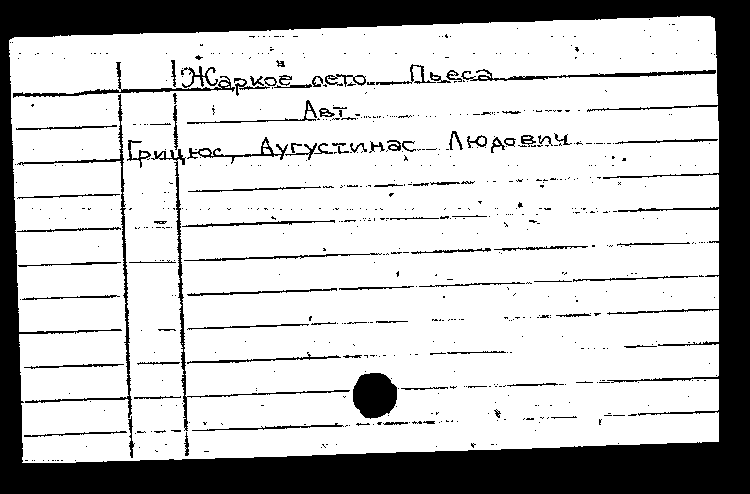 Жаркое лето Пьеса
Авт.
Грицюс, Аугустинас Людович